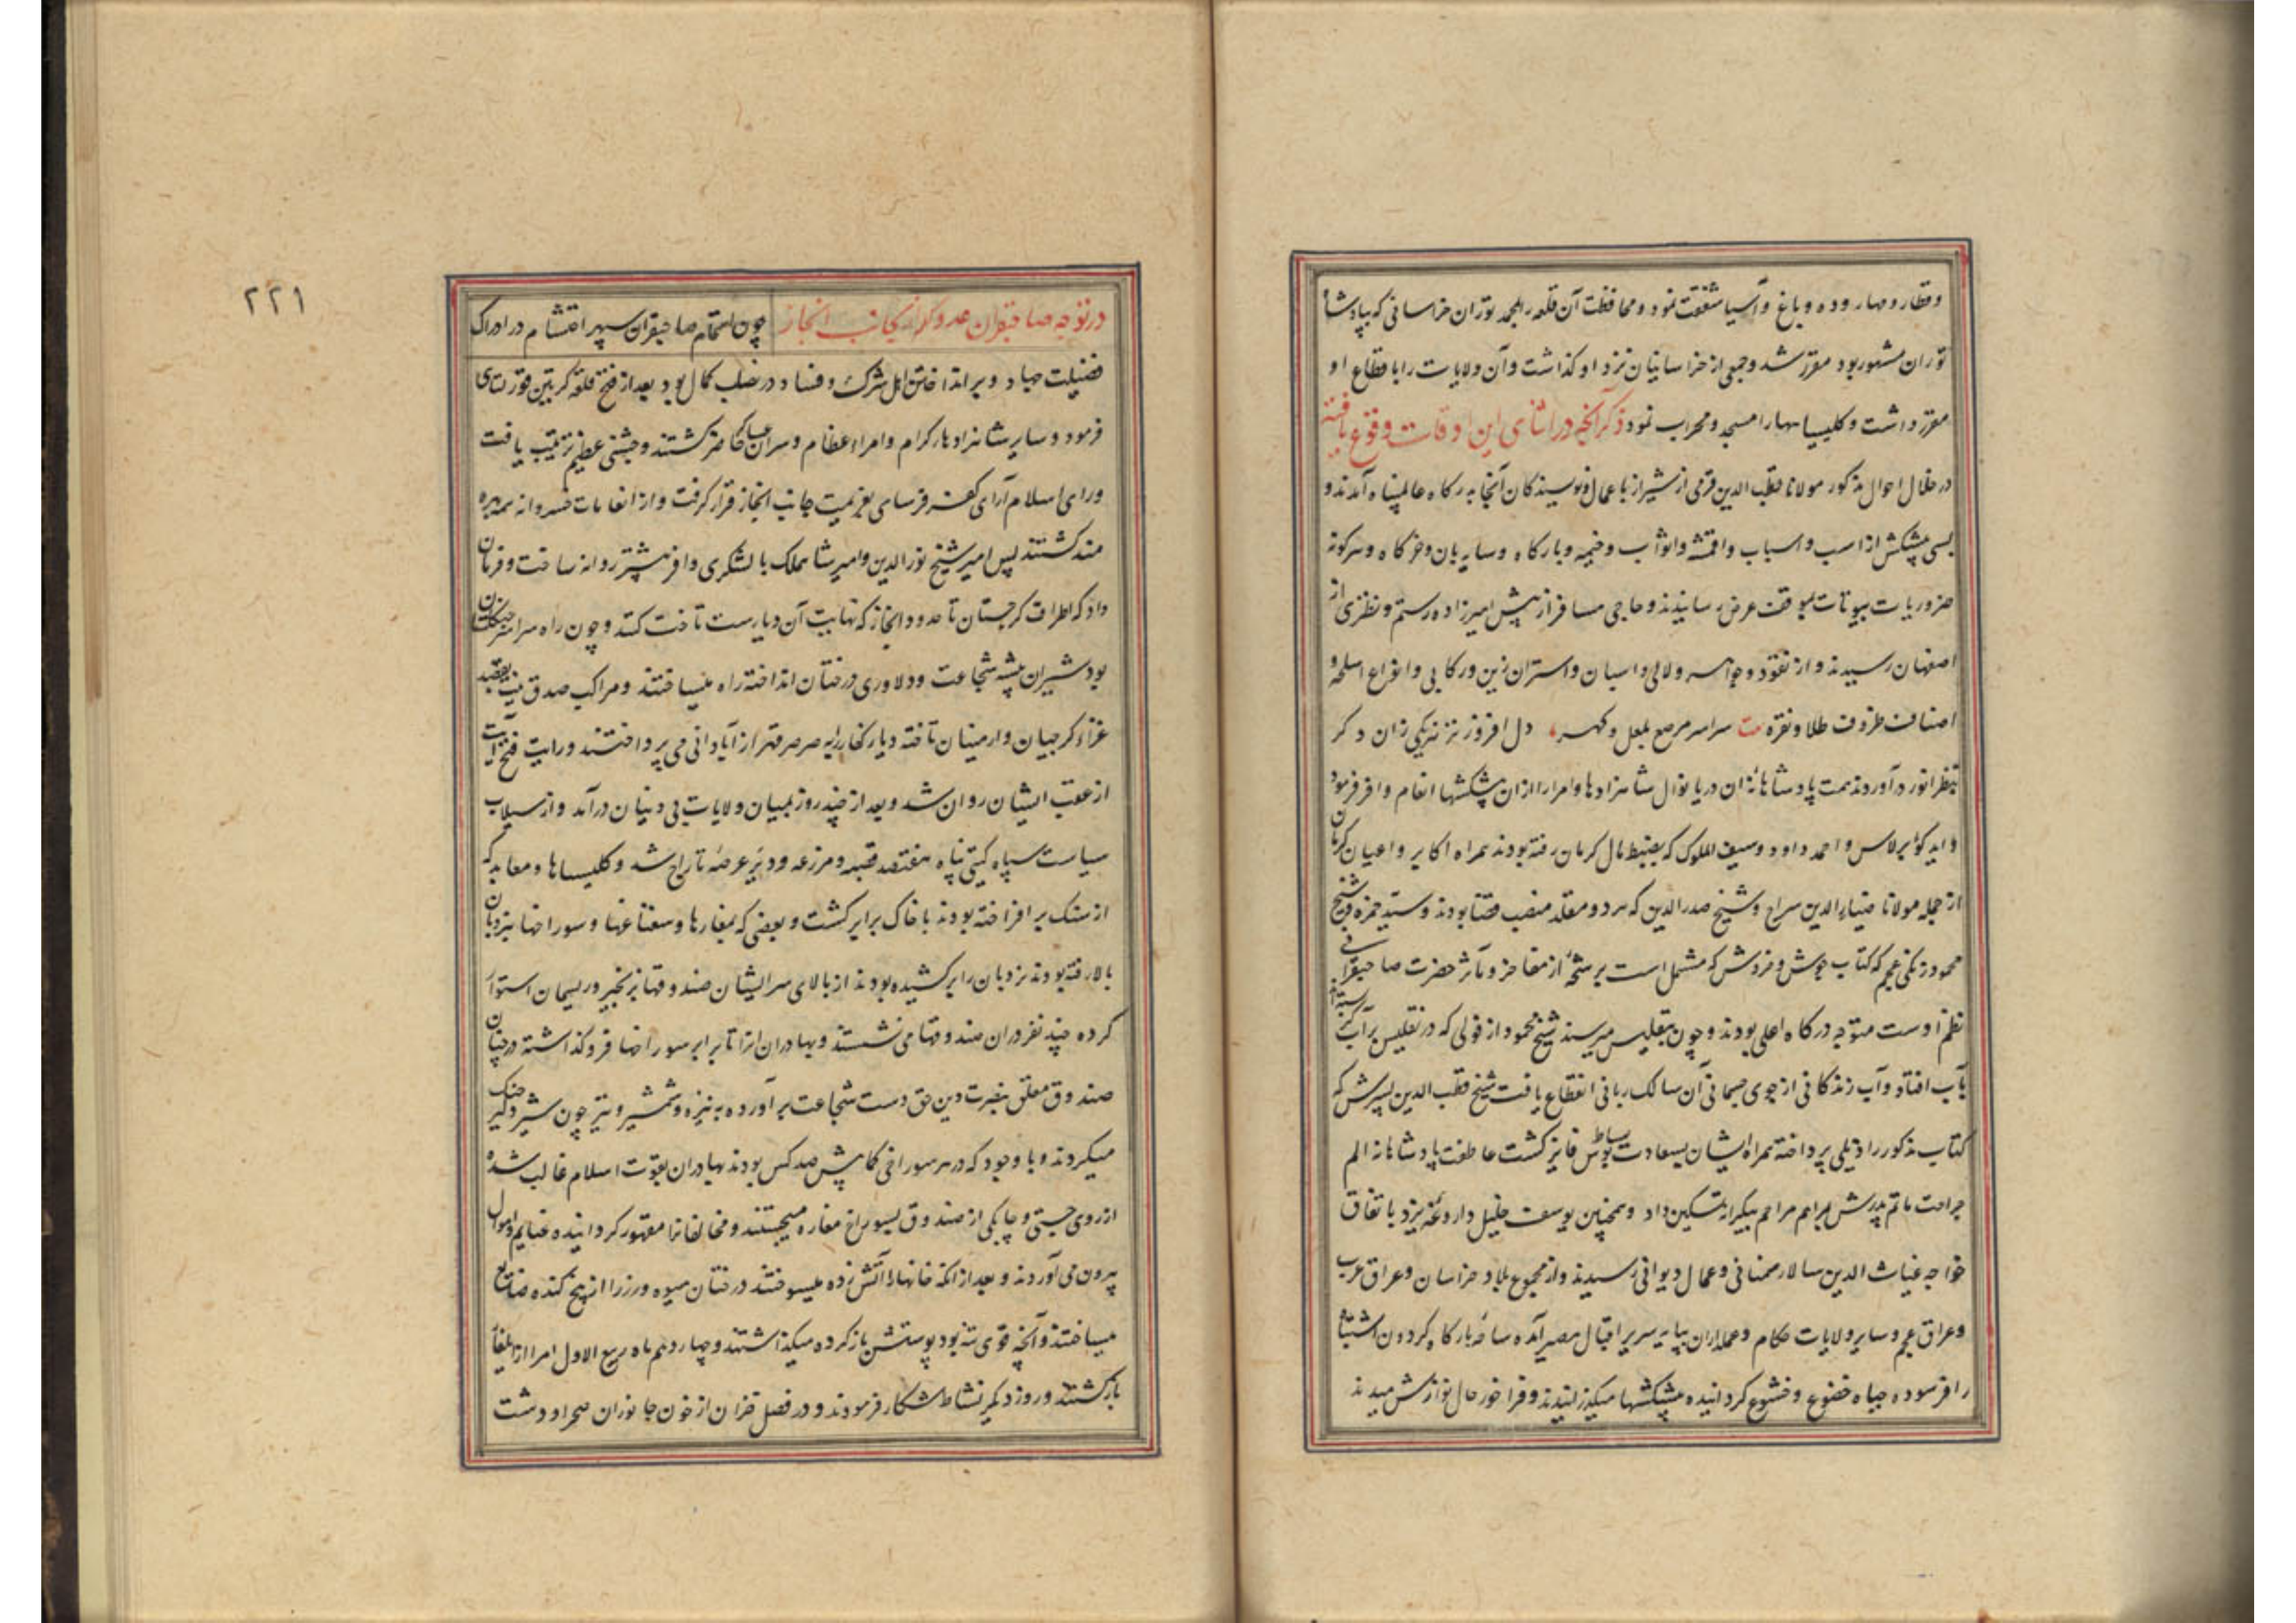 وقطار و مهار و ده و باغ و آسیا شفقت نمود و محافظت آن قلعه را بمحمد توران خراسانی که بپادشاه
توران مشهور بود مقرر شد و جمعی از خراسانیان نزد او کذاشت و آن ولایات را باقطاع او
مقرر داشت و کلیسیاها را مسجد و محراب نمود ذکر آنچه در اثنای این اوقات وقوع یافته
در خلال احوال مذکور مولانا قطب الدین قرمی از شیراز با عمال و نویسندکان آنجا بدرکاه عالمپناه آمدند و
بسی پیشکش از اسب و اسباب و اقمشه و اثواب و خیمه و بارکاه و سایه بان و خرکاه و هرکونه
ضروریات بیوتات بموقف عرض رسانیدند و حاجی مسافر از پیش امیرزاده رستم و نظری از
اصفهان رسیدند و از نقود و جواهر و لالی و اسبان و استران زین و رکابی و انواع اسلحه و
اصناف ظروف طلا و نقره بیت سراسر مرصع بلعل و کهر دل افروز تر یکی زان دکر
بنظر انور درآوردند همت پادشاهانه آن دریا نوال شاهزادها و امرا را ازان پیشکشها انعام وافر فرمود
و ایدکو برلاس و احمد داود و سیف الملوک که بضبط مال کرمان رفته بودند همراه اکابر و اعیان کرمان
از جمله مولانا ضیاءالدین سراج و شیخ صدرالدین که هر دو مقلد منصب قضا بودند و سید حمزه و شیخ
محمود زنکی عجم که کتاب جوش و خروش که مشتمل است بر شمّهٔ از مفاخر و مآثر حضرت صاحبقرانی
نظم اوست متوجه درکاه اعلی بودند و چون بتفلیس میرسند شیخ محمود از قولی که در تفلیس بر آب کر بسته اند
بآب افتاد و آب زندکانی از جوی جسمانی آن سالک ربانی انقطاع یافت شیخ قطب الدین پسرش که
کتاب مذکور را ذیلی پرداخته همراه ایشان بسعادت بساط بوس فایز کشت عاطفت پادشاهانه الم
جراحت ماتم پدرش بمراهم مراحم بیکرانه تسکین داد و همچنین یوسف جلیل داروغه یزد باتفاق
خواجه غیاث الدین سالار سمنانی و عمال دیوانی رسیدند و از مجموع بلاد خراسان و عراق عرب
و عراق عجم و سایر ولایات حکام و عملداران بپایه سریر اقبال مصیر آمده ساحه بارکاه کردون اشتباه
را فرسوده جباه خضوع و خشوع کردانیده پیشکشها میکذرانیدند و فراخور حال نوازش میدیدند
٢٢١
در توجه صاحبقران عدوکداز بجانب انجاز
چون اهتمام صاحبقران سپهر احتشام در ادراک
فضیلت جهاد و برانداختن اهل شرک و فساد در نصاب کمال بود بعد از فتح قلعه کرتین قورلتای
فرمود و سایر شاهزادهاء کرام و امراء عظام و سران سپاه حاضر کشتند و جشنی عظیم ترتیب یافت
و رای اسلام آرای کفر فرسای بعزیمت جانب انجاز قرار کرفت و از انعامات خسروانه همه بهره
مند کشتند پس امیر شیخ نورالدین و امیر شاهملک با لشکری وافر پیشتر روانه ساخت و فرمان
داد که اطراف کرجستان تا حدود انجاز که نهایت آن دیارست تاخت کنند و چون راه سراسر جنکلستان
بود شیران بیشه شجاعت و دلاوری درختان انداخته راه میساختند و مراکب صدق نیت بقصد
غزاء کرجیان و ارمنیان تاخته دیار کفار را به صرصر قهر از آبادانی می پرداختند و رایت فتح آیت
از عقب ایشان روان شد و بعد از چند روز بمیان ولایات بی دینان درآمد و از سیلاب
سیاست سپاه کیتی پناه هفتصد قصبه و مزرعه و دیر عرضه تاراج شد و کلیساها و معابد که
از سنک برافراخته بودند با خاک برابر کشت و بعضی که بمغارها و سقناغها و سوراخها بنردبان
بالا رفته بودند نردبان را برکشیده بودند از بالای سر ایشان صندوقها بزنجیر و ریسمان استوار
کرده چند نفر دران صندوقها می نشستند و بهادران انرا تا برابر سوراخها فرو کذاشته درچنان
صندوق معلق بنصرت دین حق دست شجاعت برآورده به نیزه و شمشیر و تیر چون شیر دلیر جنک
میکردند و با وجود که در هر سوراخی کمابیش صد کس بودند بهادران بقوت اسلام غالب شده
از روی چستی و چابکی از صندوق بسوراخ مغاره میجستند و مخالفانرا مقهور کردانیده غنایم و اموال
بیرون می آوردند و بعد از انکه خانهارا آتش زده میسوختند درختان میوه و رزرا از بیخ کنده ضایع
میساختند و آنچه قوی تنه بود پوستش باز کرده میکذاشتند و چهاردهم ماه ربیع الاول امرا از ایلغار
بازکشتند و روز دیکر نشاط شکار فرمودند و در فصل خزان از خون جانوران صحرا و دشت